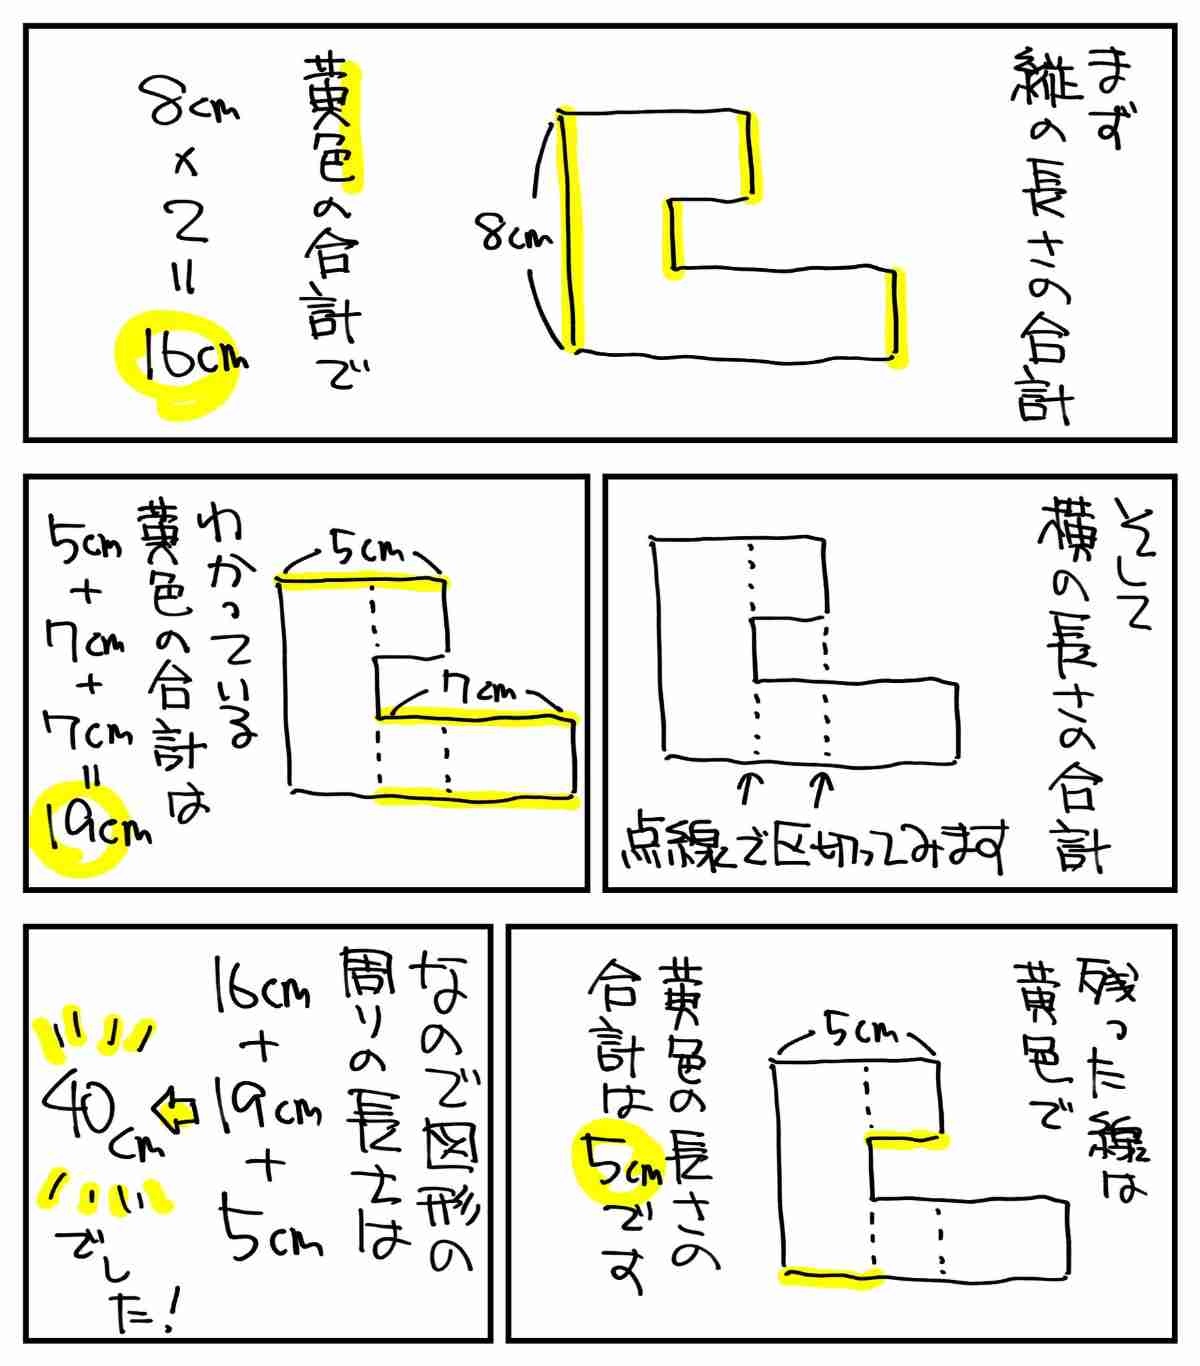 まず
縦の長さの合計
8cm
黄色の合計で
8cm
×
2
=
16cm
そして
横の長さの合計
点線で区切ってみます
5cm
7cm
わかっている
黄色の合計は
5cm
+
7cm
+
7cm
=
19cm
残った線は
黄色で
5cm
黄色の長さの
合計は5cmです
なので図形の
周りの長さは
16cm
+
19cm
+
5cm
40cm
でした!